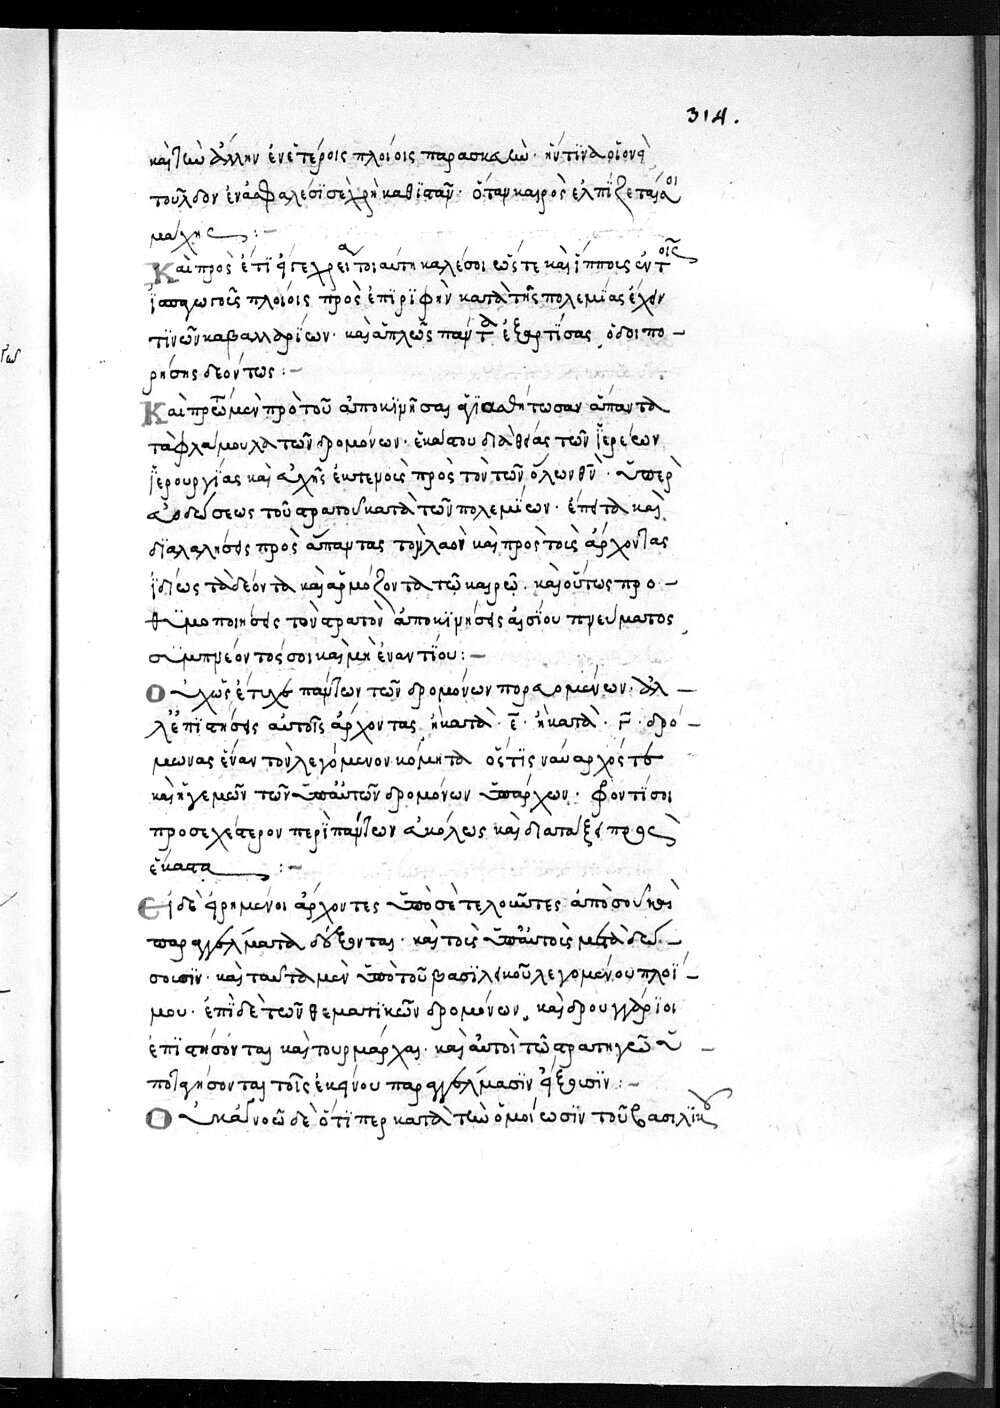 314.
καὶ τὴν ἄλλην ἐν ἑτέροις πλοίοις παρασκευὴν· ἥντινα οἱονεὶ
τοῦλδον ἐν ἀσφαλέσϊ σε χρὴ καθιστᾶν· ὅταν καιρὸς ἐλπίζεται
μάχης :-
Καὶ πρὸς ἔτϊ εἴ γε χρεία τοιαύτη καλέσοι ὥστε καὶ ἵππους ἐν τοῖς
ϊππαγωγοῖς πλοίοις πρὸς ἐπϊρϊφὴν κατὰ τῆς πολεμίας ἔχειν
τινῶν καβαλλαρΐων· καὶ ἁπλῶς πάντα ἐξαρτίσας, ὁδοιπο-
ρήσῃς δεόντως :-
Καὶ πρῶτον μὲν πρὸ τοῦ ἀποκϊνῆσαι ἁγϊασθήτωσαν ἅπαντα
τὰ φλάμουλα τῶν δρομόνων· ἑκάστου διὰ θείας τῶν ϊερέων
ϊερουργίας καὶ εὐχῆς ἐκτενοῦς πρὸς τὸν τῶν ὅλων θν̅· ὑπὲρ
εὐοδώσεως τοῦ στρατοῦ κατὰ τῶν πολεμΐων· ἔπειτα καὶ
διαλαλήσεις πρὸς ἅπαντας τὸν λαὸν καὶ πρὸς τοὺς ἄρχοντας
ϊδίως τὰ δέοντα καὶ ἁρμόζοντα τῷ καιρῷ. καὶ οὕτως προ-
θυμοποιήσεις τὸν στρατὸν ἀποκϊνήσεις αἰσίου πνεύματος
συμπνέοντός σοι καὶ μὴ ἐναντίου :-
Οὐχ ὡς ἔτυχε πάντων τῶν δρομόνων πορευομένων· ἀλ-
λ' ἐπϊστήσεις αὐτοῖς ἄρχοντας, ἢ κατὰ · ε̅ · ἢ κατὰ · γ̅ · δρό-
μωνας ἕναν τὸν λεγόμενον κόμητα ὅστϊς ναύαρχός τε
καὶ ἡγεμὼν τῶν ὑπ' αὐτῶν δρομόνων ὑπάρχων· φροντίσοι
προσεχέστερον περὶ πάντων εὐκόλως καὶ διατάξει πρὸς
ἕκαστα :-
Εἰ δὲ εἰρημένοι ἄρχοντες ὑπὸ σὲ τελοῦντες ἀπὸ σοῦ καὶ
παραγγέλματα δέξονται· καὶ τοῖς ὑπ' αὐτοὺς μεταδώ-
σουσϊν· καὶ ταῦτα μὲν ὑπὸ τοῦ βασιλϊκοῦ λεγομένου πλοΐ-
μου· ἐπὶ δὲ τῶν θεματϊκῶν δρομόνων, καὶ δρουγγάριοι
ἐπϊστήσονται καὶ τουρμάρχαι· καὶ αὐτοὶ τῷ στρατηγῷ ὑ-
ποταγήσονται τοῖς ἐκείνου παραγγέλμασϊν εἴξουσϊν :-
Οὐκ ἀγνοῶ δὲ ὅτϊ περ κατὰ τὴν ὁμοίωσϊν τοῦ βασιλϊκοῦ